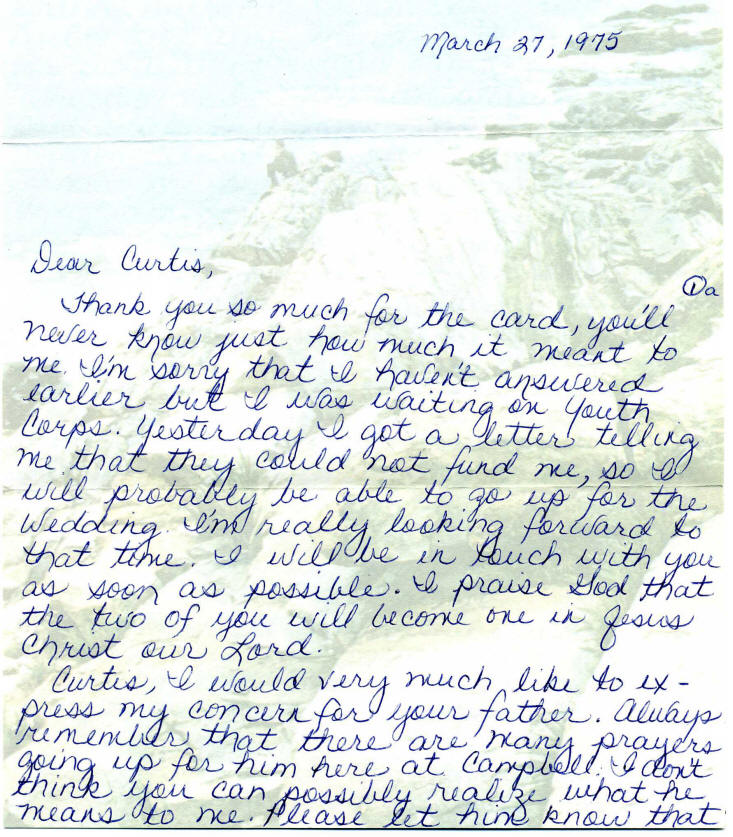 March 27, 1975
Dear Curtis,
①a
Thank you so much for the card, you'll
never know just how much it meant to
me. I'm sorry that I haven't answered
earlier but I was waiting on Youth
Corps. Yesterday I got a letter telling
me that they could not fund me, so I
will probably be able to go up for the
Wedding. I'm really looking forward to
that time. I will be in touch with you
as soon as possible. I praise God that
the two of you will become one in Jesus
Christ our Lord.
Curtis, I would very much like to ex-
press my concern for your father. Always
remember that there are many prayers
going up for him here at Campbell. I don't
think you can possibly realize what he
means to me. Please let him know that